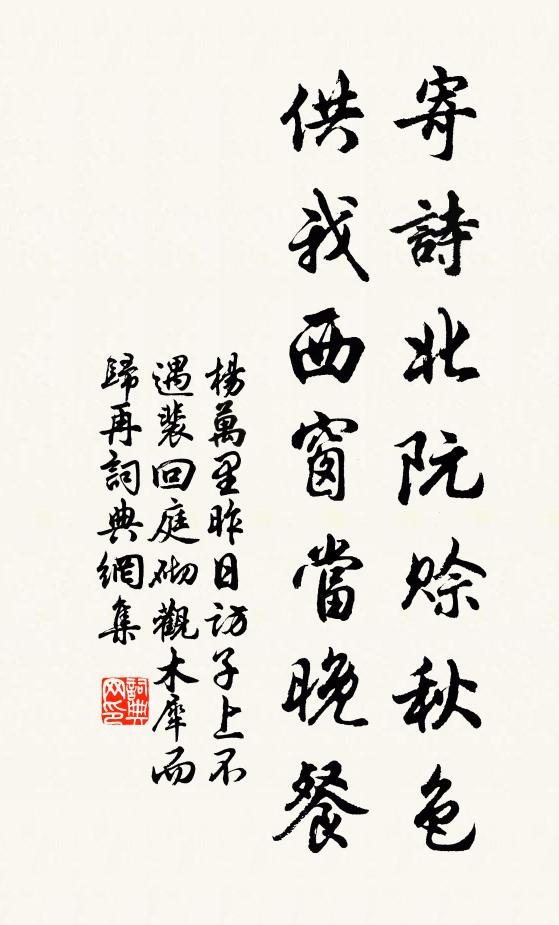 寄詩北阮賒秋色
供我西窗當晚餐
楊萬里昨日訪子上不
遇裴回庭砌觀木犀而
歸再詞典網集
詞典网印